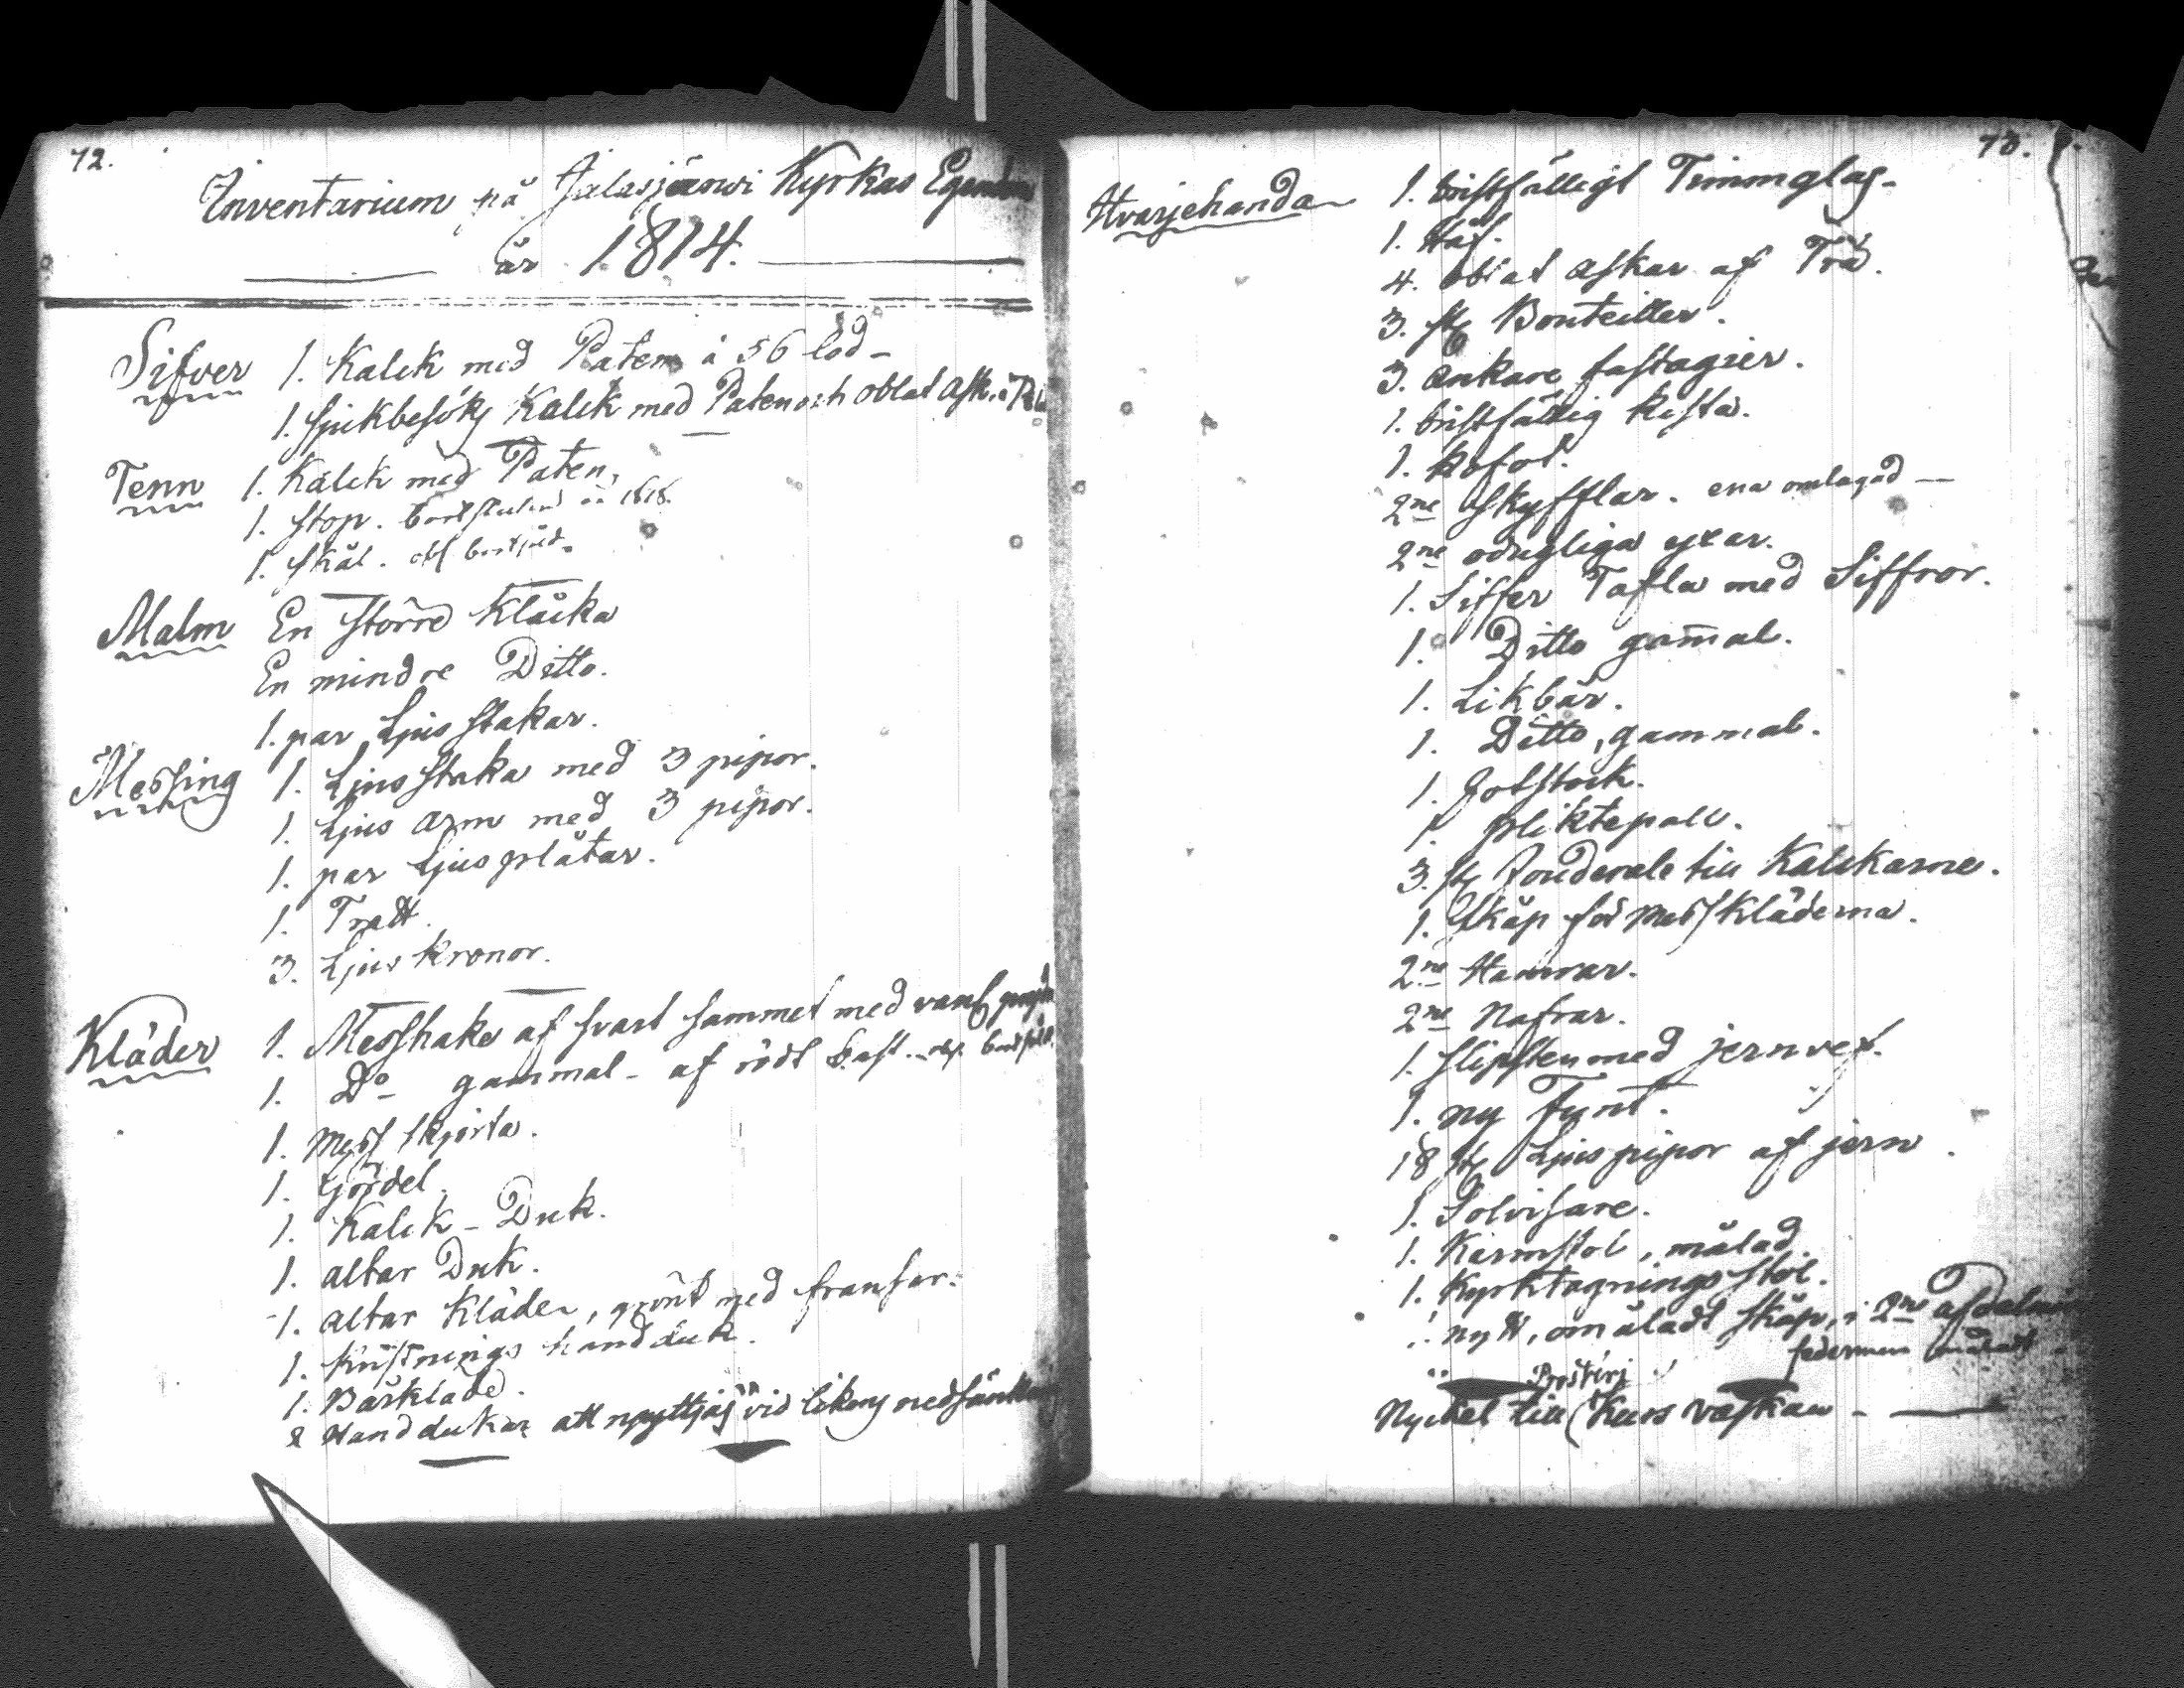 72.
Inventarium på Jalasjärwi Kyrkas Egendom
år 1814.
Silfver 1. Kalck med Paten à 56 lod -
1. Sjukbesöks Kalck med Paten och oblat Ask
Tenn 1. Kalck med Paten,
1. Stop. bortstulen år 1818.
1. Skål.
Malm En större Klåcka
En mindre Ditto.
1. par Ljus Stakar.
Messing 1. Ljus Staka med 3 pipor.
1. Ljus Arm med 3 pipor.
1. par Ljus plåtar.
1. Tratt.
3. Ljus kronor.
Kläder 1. Messhake af svart sammet med
1. Do gammal - af rödt
1. Mess skjorta.
1. Gördel.
1. Kalck - Duk.
1. altar Duk.
1. altar Kläde, grönt med fransar.
1. Kristnings handduk.
1. Bårkläde.
2 Handdukar att nyttjas vid likens nedsänkan
73.
Hvarjehanda 1. bristfälligt Timmglas.
1. Håf.
4. oblat Askar af Trä.
3. st Bouteiller.
3. Ankare fastagier.
1. bristfällig kista.
1. kofot.
2ne Skyfflar. ena omlagad
2ne odugliga yxar.
1. Siffer Tafla med Siffror.
1. Ditto gam̄al.
1. Likbår.
1. Ditto, gammal.
1. Fotstock.
1. pliktepall.
3. st Fouderale till Kalckarne.
1. Skåp för Messkläderna.
2ne Hamrar.
2ne Nafrar.
1. Slipsten med jernvef.
1. ny Funt.
18 st Ljuspipor af jern.
1. Solvisare.
1. Karmstol, målad.
1. Kyrktagnings Stol.
1. nytt, omåladt Skåp, i 2ne afdelnin
sedermera måladt
Nyckel till